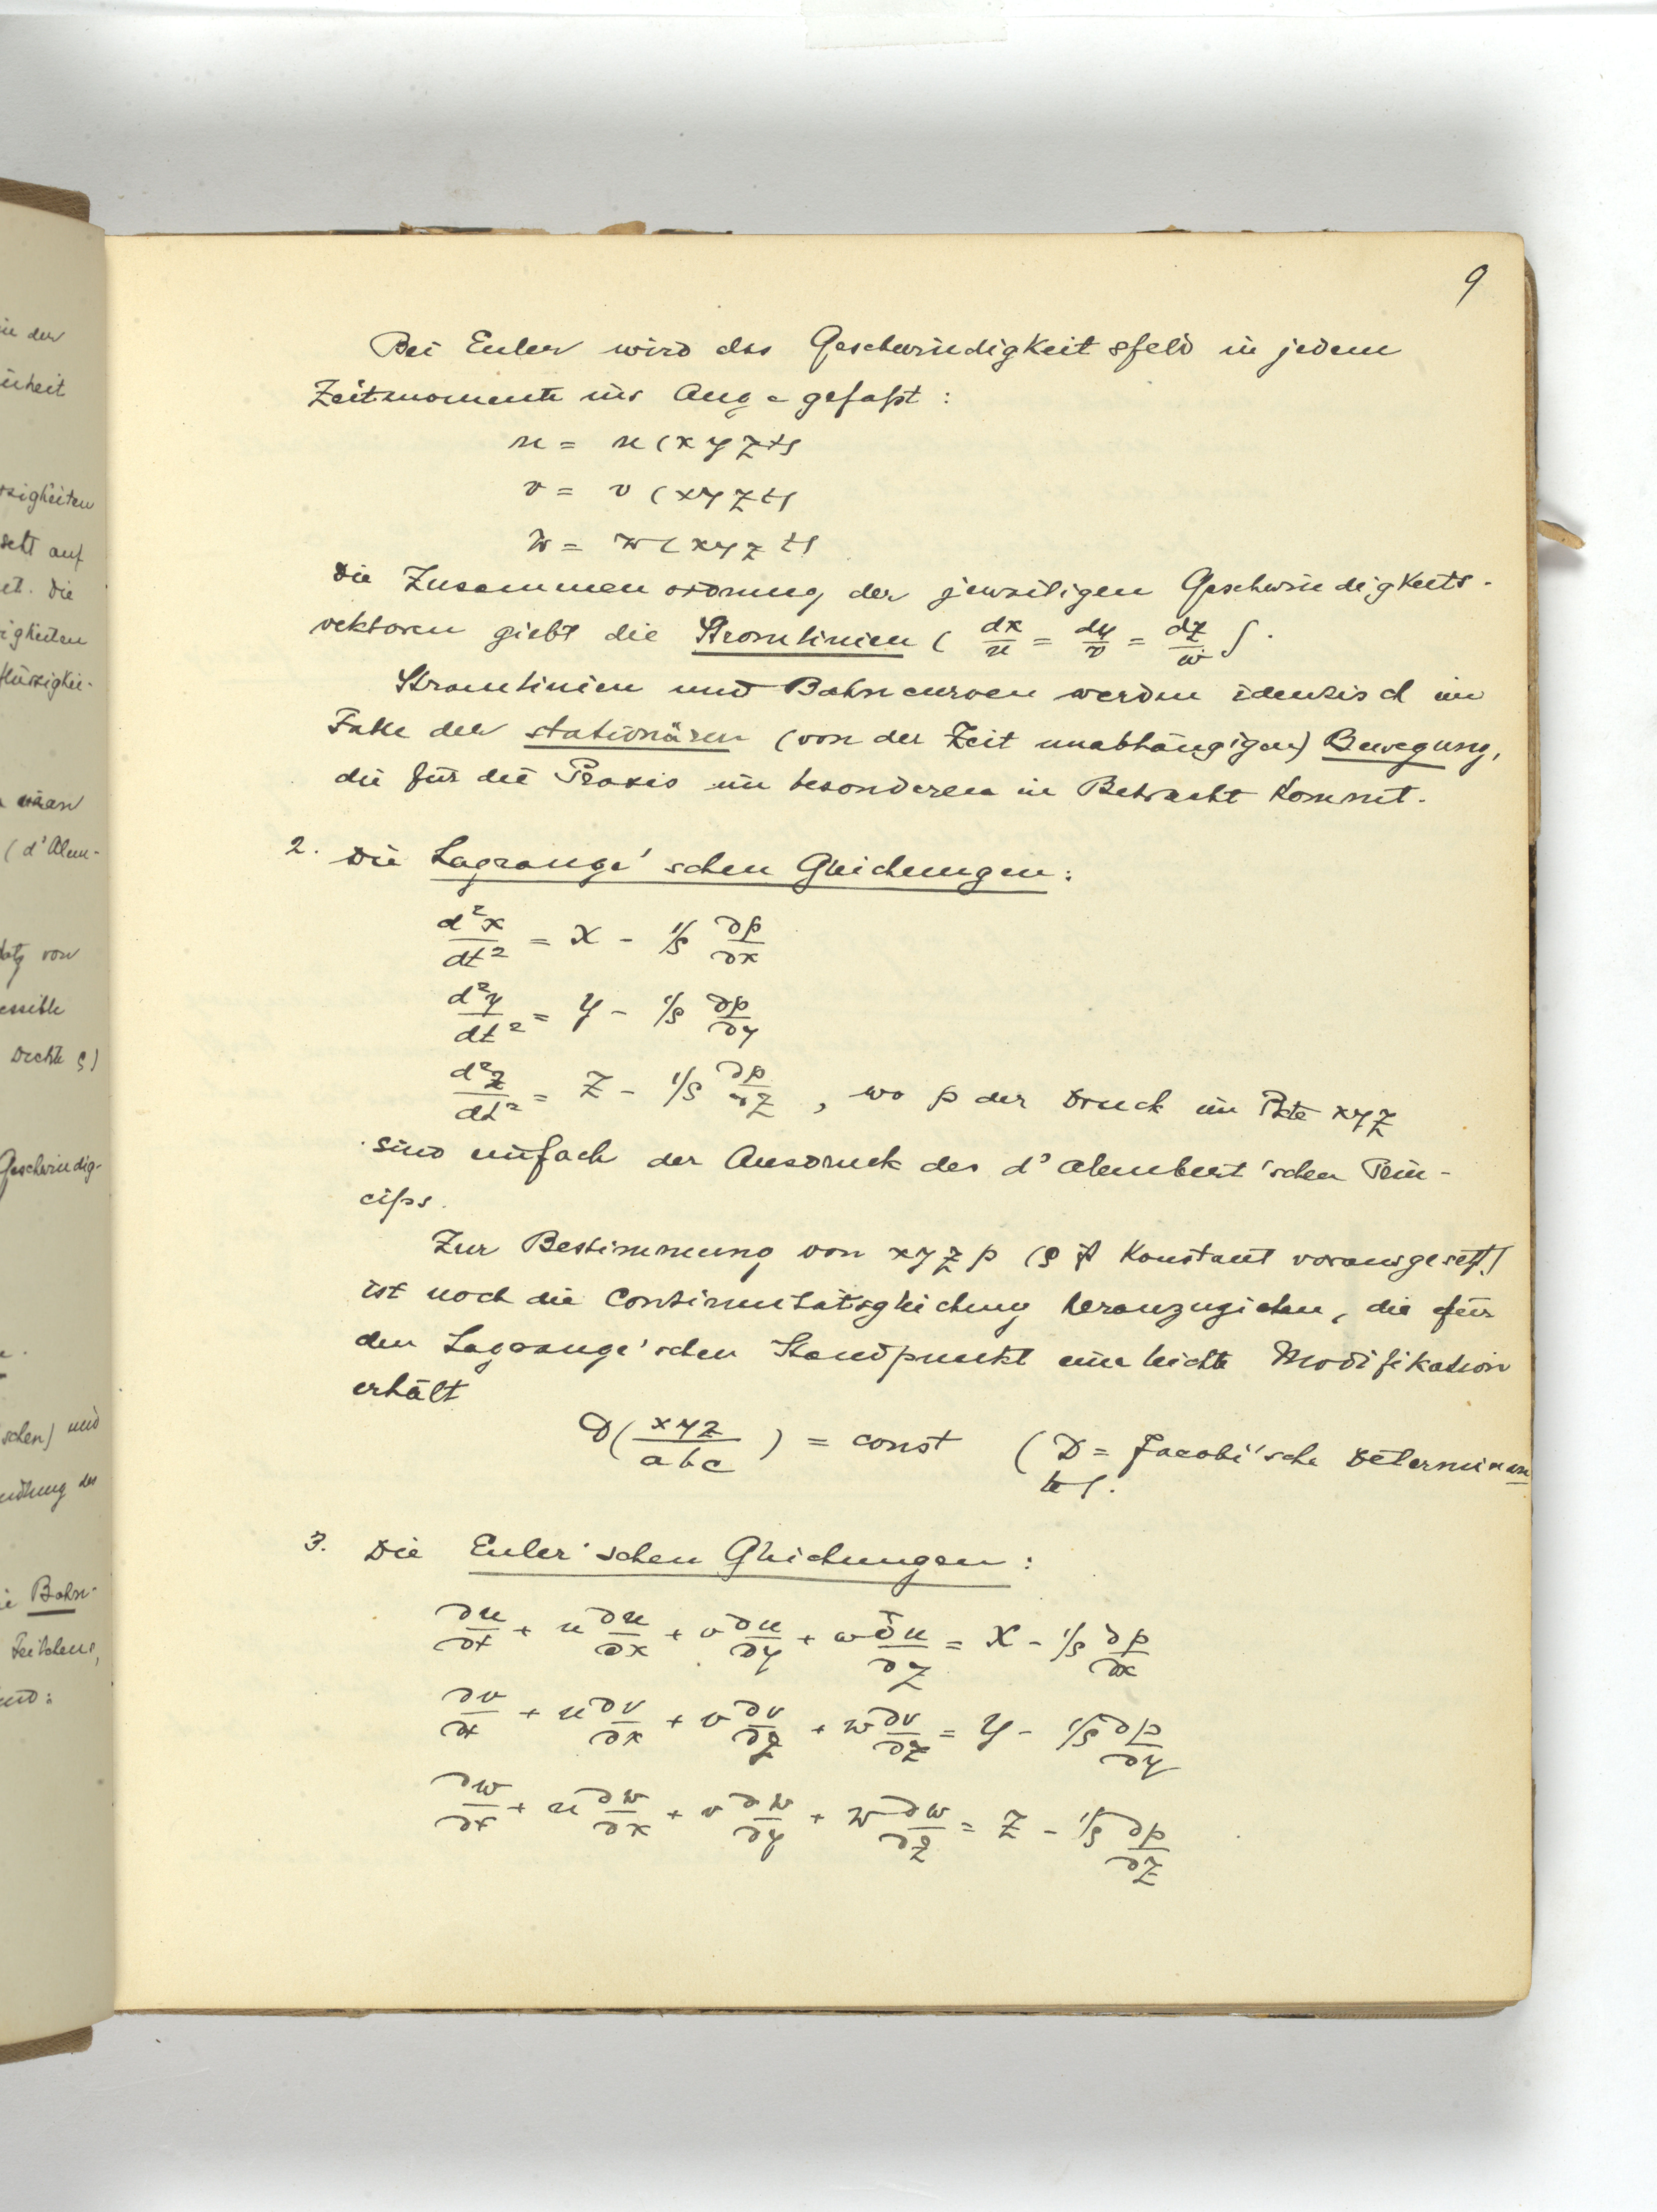 in der
inheit
sigkeiten
sett auf
et. Die
igkeiten
flüssigkei-
man
(d'Alem-
von
essible
Dichte ρ)
Geschwindig-
schen) und
des
Bahn-
Teilchens,
9
Bei Euler wird das Geschwindigkeitsfeld in jedem
Zeitmomente ins Auge gefaßt :
u = u (x y z t)
v = v (x y z t)
w = w (x y z t)
Die Zusammenordnung der jeweiligen Geschwindigkeits-
vektoren giebt die Stromlinien ( dx/u = dy/v = dz/w ).
Stromlinien und Bahncurven werden identisch im
Falle der stationären (von der Zeit unabhängigen) Bewegung,
die für die Praxis im besonderen in Betracht kommt.
2. Die Lagrange'schen Gleichungen:
d²x/dt² = X - 1/ρ ∂p/∂x
d²y/dt² = Y - 1/ρ ∂p/∂y
d²z/dt² = Z - 1/ρ ∂p/∂z , wo p der Druck im Pkte xyz
sind einfach der Ausdruck des d'Alembert'schen Prin-
cips.
Zur Bestimmung von x y z p (ρ konstant vorausgesetzt)
ist noch die Continuitätsgleichung heranzuziehen, die für
den Lagrange'schen Standpunkt eine leichte Modifikation
erhält
D( xyz/abc ) = const (D = Jacobi'sche Determinan
te).
3. Die Euler'schen Gleichungen :
∂u/∂t + u ∂u/∂x + v ∂u/∂y + w ∂u/∂z = X - 1/ρ ∂p/∂x
∂v/∂t + u ∂v/∂x + v ∂v/∂y + w ∂v/∂z = Y - 1/ρ ∂p/∂y
∂w/∂t + u ∂w/∂x + v ∂w/∂y + w ∂w/∂z = Z - 1/ρ ∂p/∂z